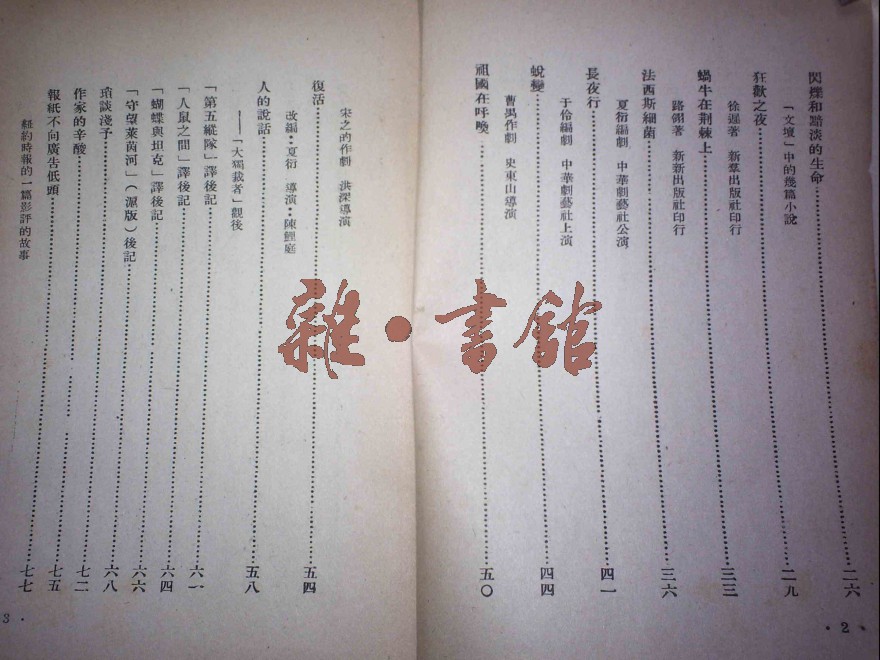 閃爍和黯淡的生命⋯⋯二六
「文壇」中的幾篇小說
狂歡之夜⋯⋯二九
徐遲著　新羣出版社印行
蝸牛在荆棘上⋯⋯三三
路翎著　新新出版社印行
法西斯細菌⋯⋯三六
夏衍編劇　中華劇藝社公演
長夜行⋯⋯四一
于伶編劇　中華劇藝社上演
蛻變⋯⋯四四
曹禺作劇　史東山導演
祖國在呼喚⋯⋯五〇
宋之的作劇　洪深導演
· 2 ·
復活⋯⋯五四
改編：夏衍　導演：陳鯉庭
人的說話⋯⋯五八
——「大獨裁者」觀後
「第五縱隊」譯後記⋯⋯六一
「人鼠之間」譯後記⋯⋯六四
「蝴蝶與坦克」譯後記⋯⋯六六
「守望萊茵河」（滬版）後記⋯⋯六八
瑣談淺予⋯⋯
作家的辛酸⋯⋯七二
報紙不向廣告低頭⋯⋯七五
紐約時報的一篇影評的故事⋯⋯七七
3 ·
雜·書館